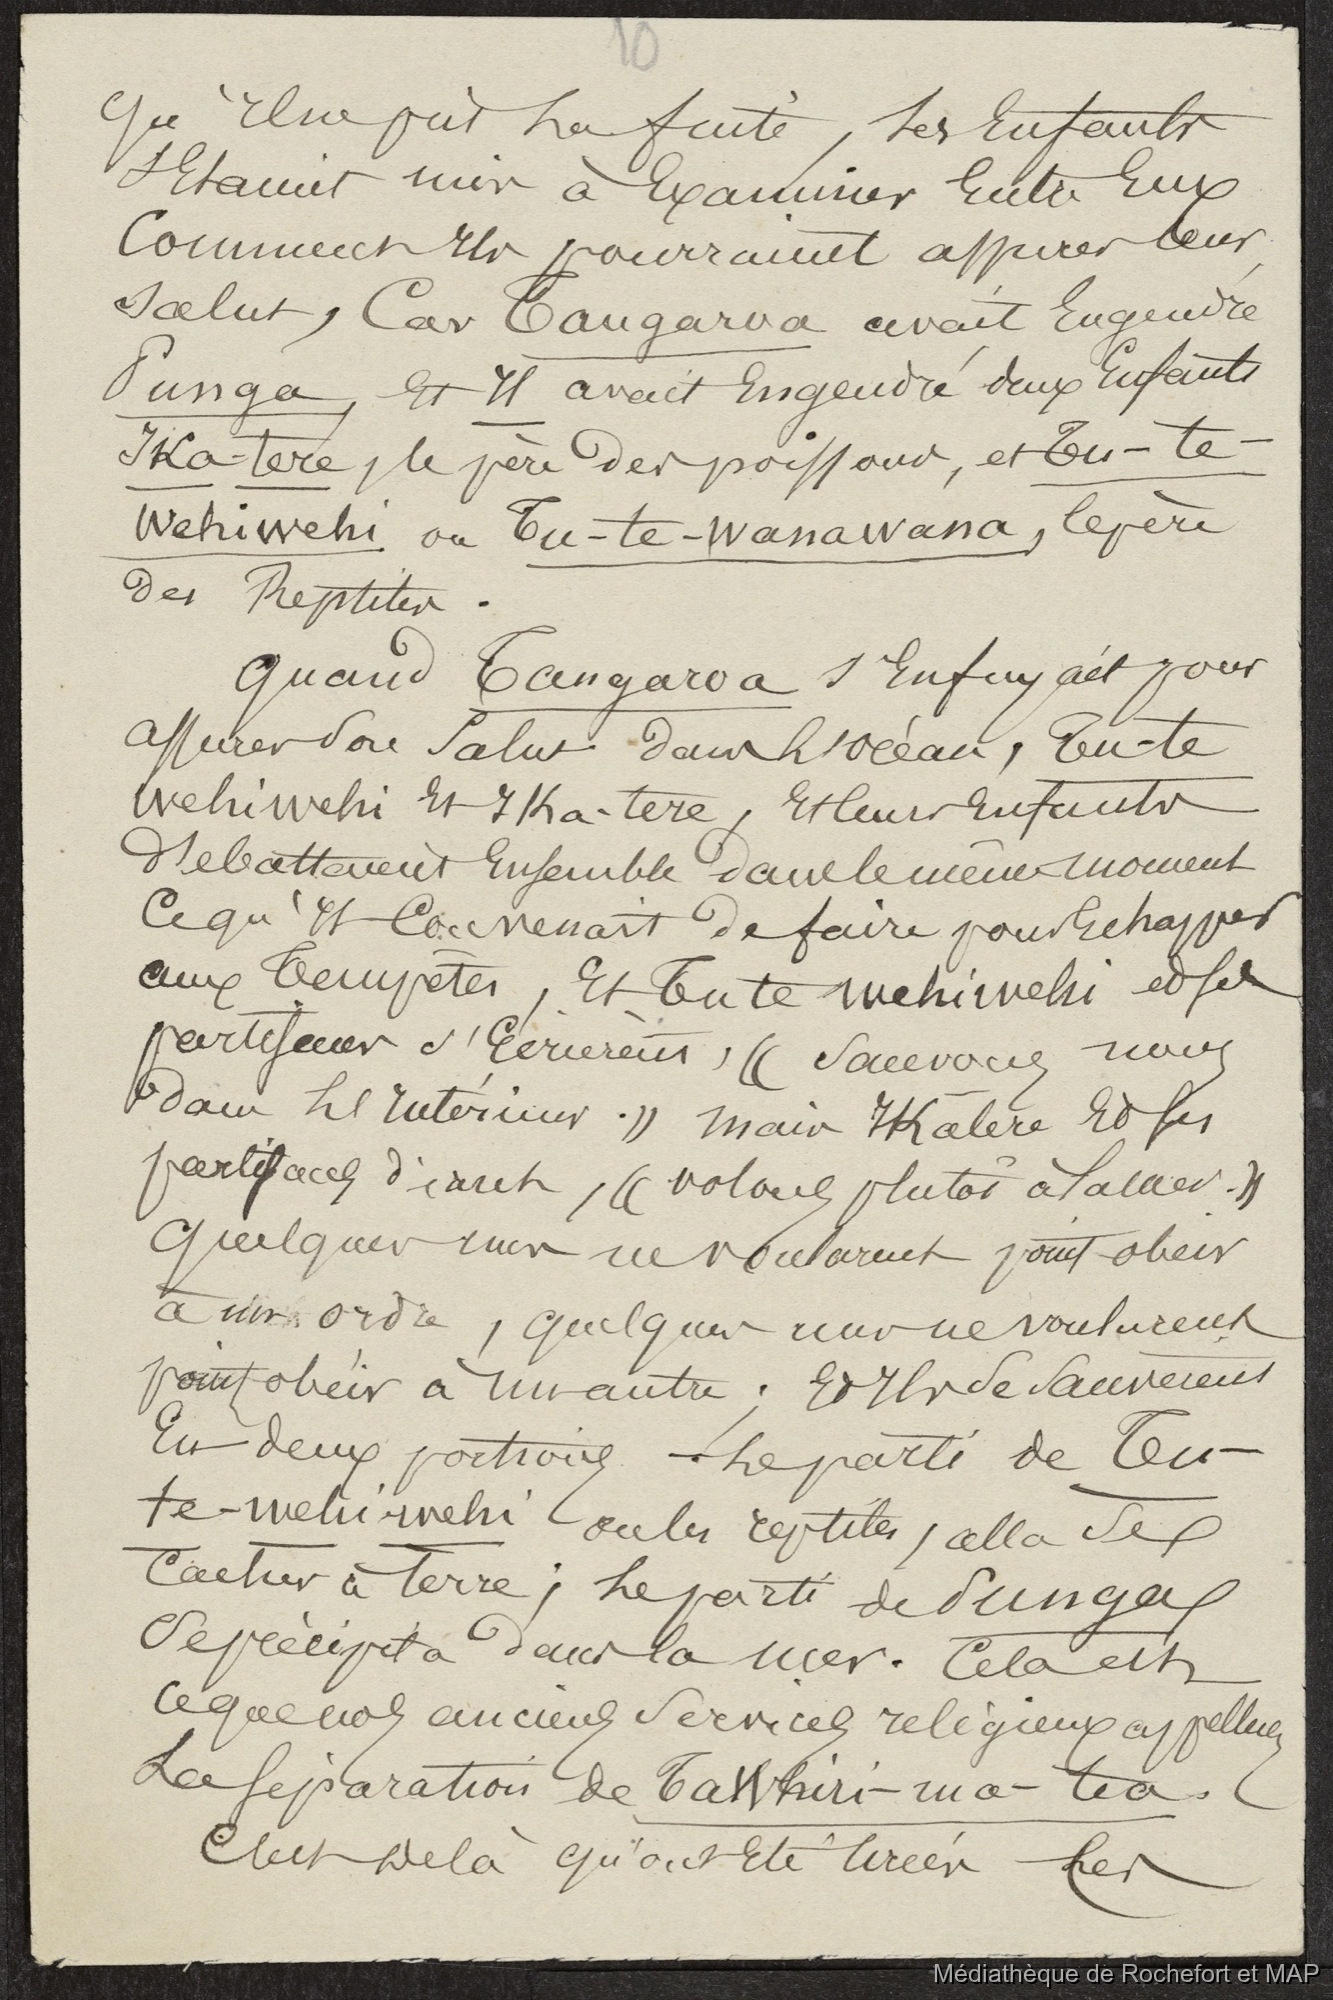 10
qu'il ne prit la fuite, les Enfants
s'Etaient mis à Examiner Entre Eux
Comment Ils pourraient assurer leur
salut, Car Tangaroa avait Engendré
Punga, Et Il avait Engendré deux Enfants
IKa-tere, le père des poissons, et Tu-te-
wehiwehi ou Tu-te-wanawana, le père
des Reptiles.
Quand Tangaroa s'Enfuyait pour
assurer son Salut dans l'océan, Tu-te
wehiwehi Et IKa-tere, Et leurs Enfants
débattaient Ensemble dans le même moment
Ce qu'Il Convenait de faire pour Echapper
aux Tempêtes, Et Tu te wehiwehi et ses
partisans s'Ecrièrent, « Sauvons nous
dans l'Intérieur. » mais IKatere Et ses
partisans dirent, « volons plutôt à la mer. »
Quelques uns ne voulurent point obeir
à un ordre, quelques uns ne voulurent
point obéir à un autre; Et Ils se Sauvèrent
En deux portions. Le parti de Tu-
te-wehi-wehi ou les reptiles, alla se
Cacher à Terre; le parti de Punga
se précipita dans la mer. Cela est
ce que nos anciens Services religieux appellent
La Séparation de Tawhiri-ma-tea.
C'est de là qu'ont Eté Créés Les
Médiathèque de Rochefort et MAP